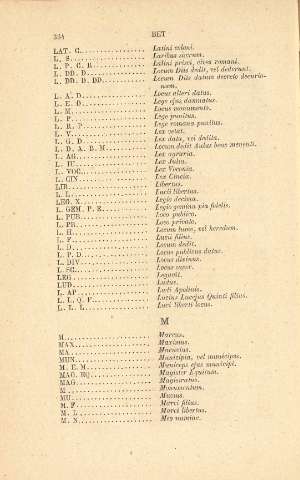 334 BET
LAT. C. Latini coloni.
L. S. Laribus sacrum.
L. P. C. R. Latini prisci, cives romani.
L. DD. D. Locum Diis dedit, vel dederunt.
L. DD. D. DD. Locum Diis datum decreto decurionum.
L. A. D. Locus alteri datus.
L. E. D. Lege ejus damnatus.
L. M. Locus monumenti.
L. P. Lege punitus.
L. R. P. Lege romana punitus.
L. V. Lex vetat.
L. G. D. Lex data, vel dedita.
L. D. A. B. M. Locum dedit Aulus bene merenti.
L. AG. Lex agraria.
L. IU. Lex Julia.
L. VOC. Lex Voconia.
L. CIN. Lex Cincia.
LIB. Libertus.
L. L. Lucii libertus.
LEG. X. Legio decima.
L. GEM. P. F. Legio gemina pia fidelis.
L. PUB. Loco publico.
L. PR. Loco privato.
L. H. Locum hunc, vel heredem.
L. F. Lucii filius.
L. D. Locum dedit.
L. P. D. Locus publicus datus.
L. DIV. Locus divinus.
L. SC. Locus sacer.
LEG. Legavit.
LUD. Ludus.
L. AP. Ludi Apolinis.
L. L. Q. F. Lucius Lucejus Quinti filius.
L. L. L. Luci liberti locus.
M
M. Marcus.
MAX. Maximus.
MA. Mamerius.
MUN. Municipia, vel municipus.
M. E. M. Municeps ejus municipi.
MAG. EQ. Magister Equitum.
MAG. Magistratus.
M. Monumentum.
MU. Mucius.
M. F. Marci filius.
M. L. Marci libertus.
M. N. Meo nomine.